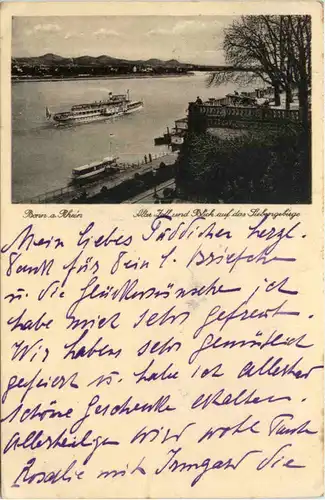 Bonn a. Rhein Alter Zoll und Blick auf das Siebengebirge
Mein liebes herzl.
Dank für Dein l. Briefchen
u. die Glückwünsche ich
habe mich sehr gefreut.
Wir haben sehr gemütlich
gefeiert u. habe ich allerhand
schöne Geschenke erhalten.
Allerheiligen wird wohl Tante
Rosalie mit Irmgard die